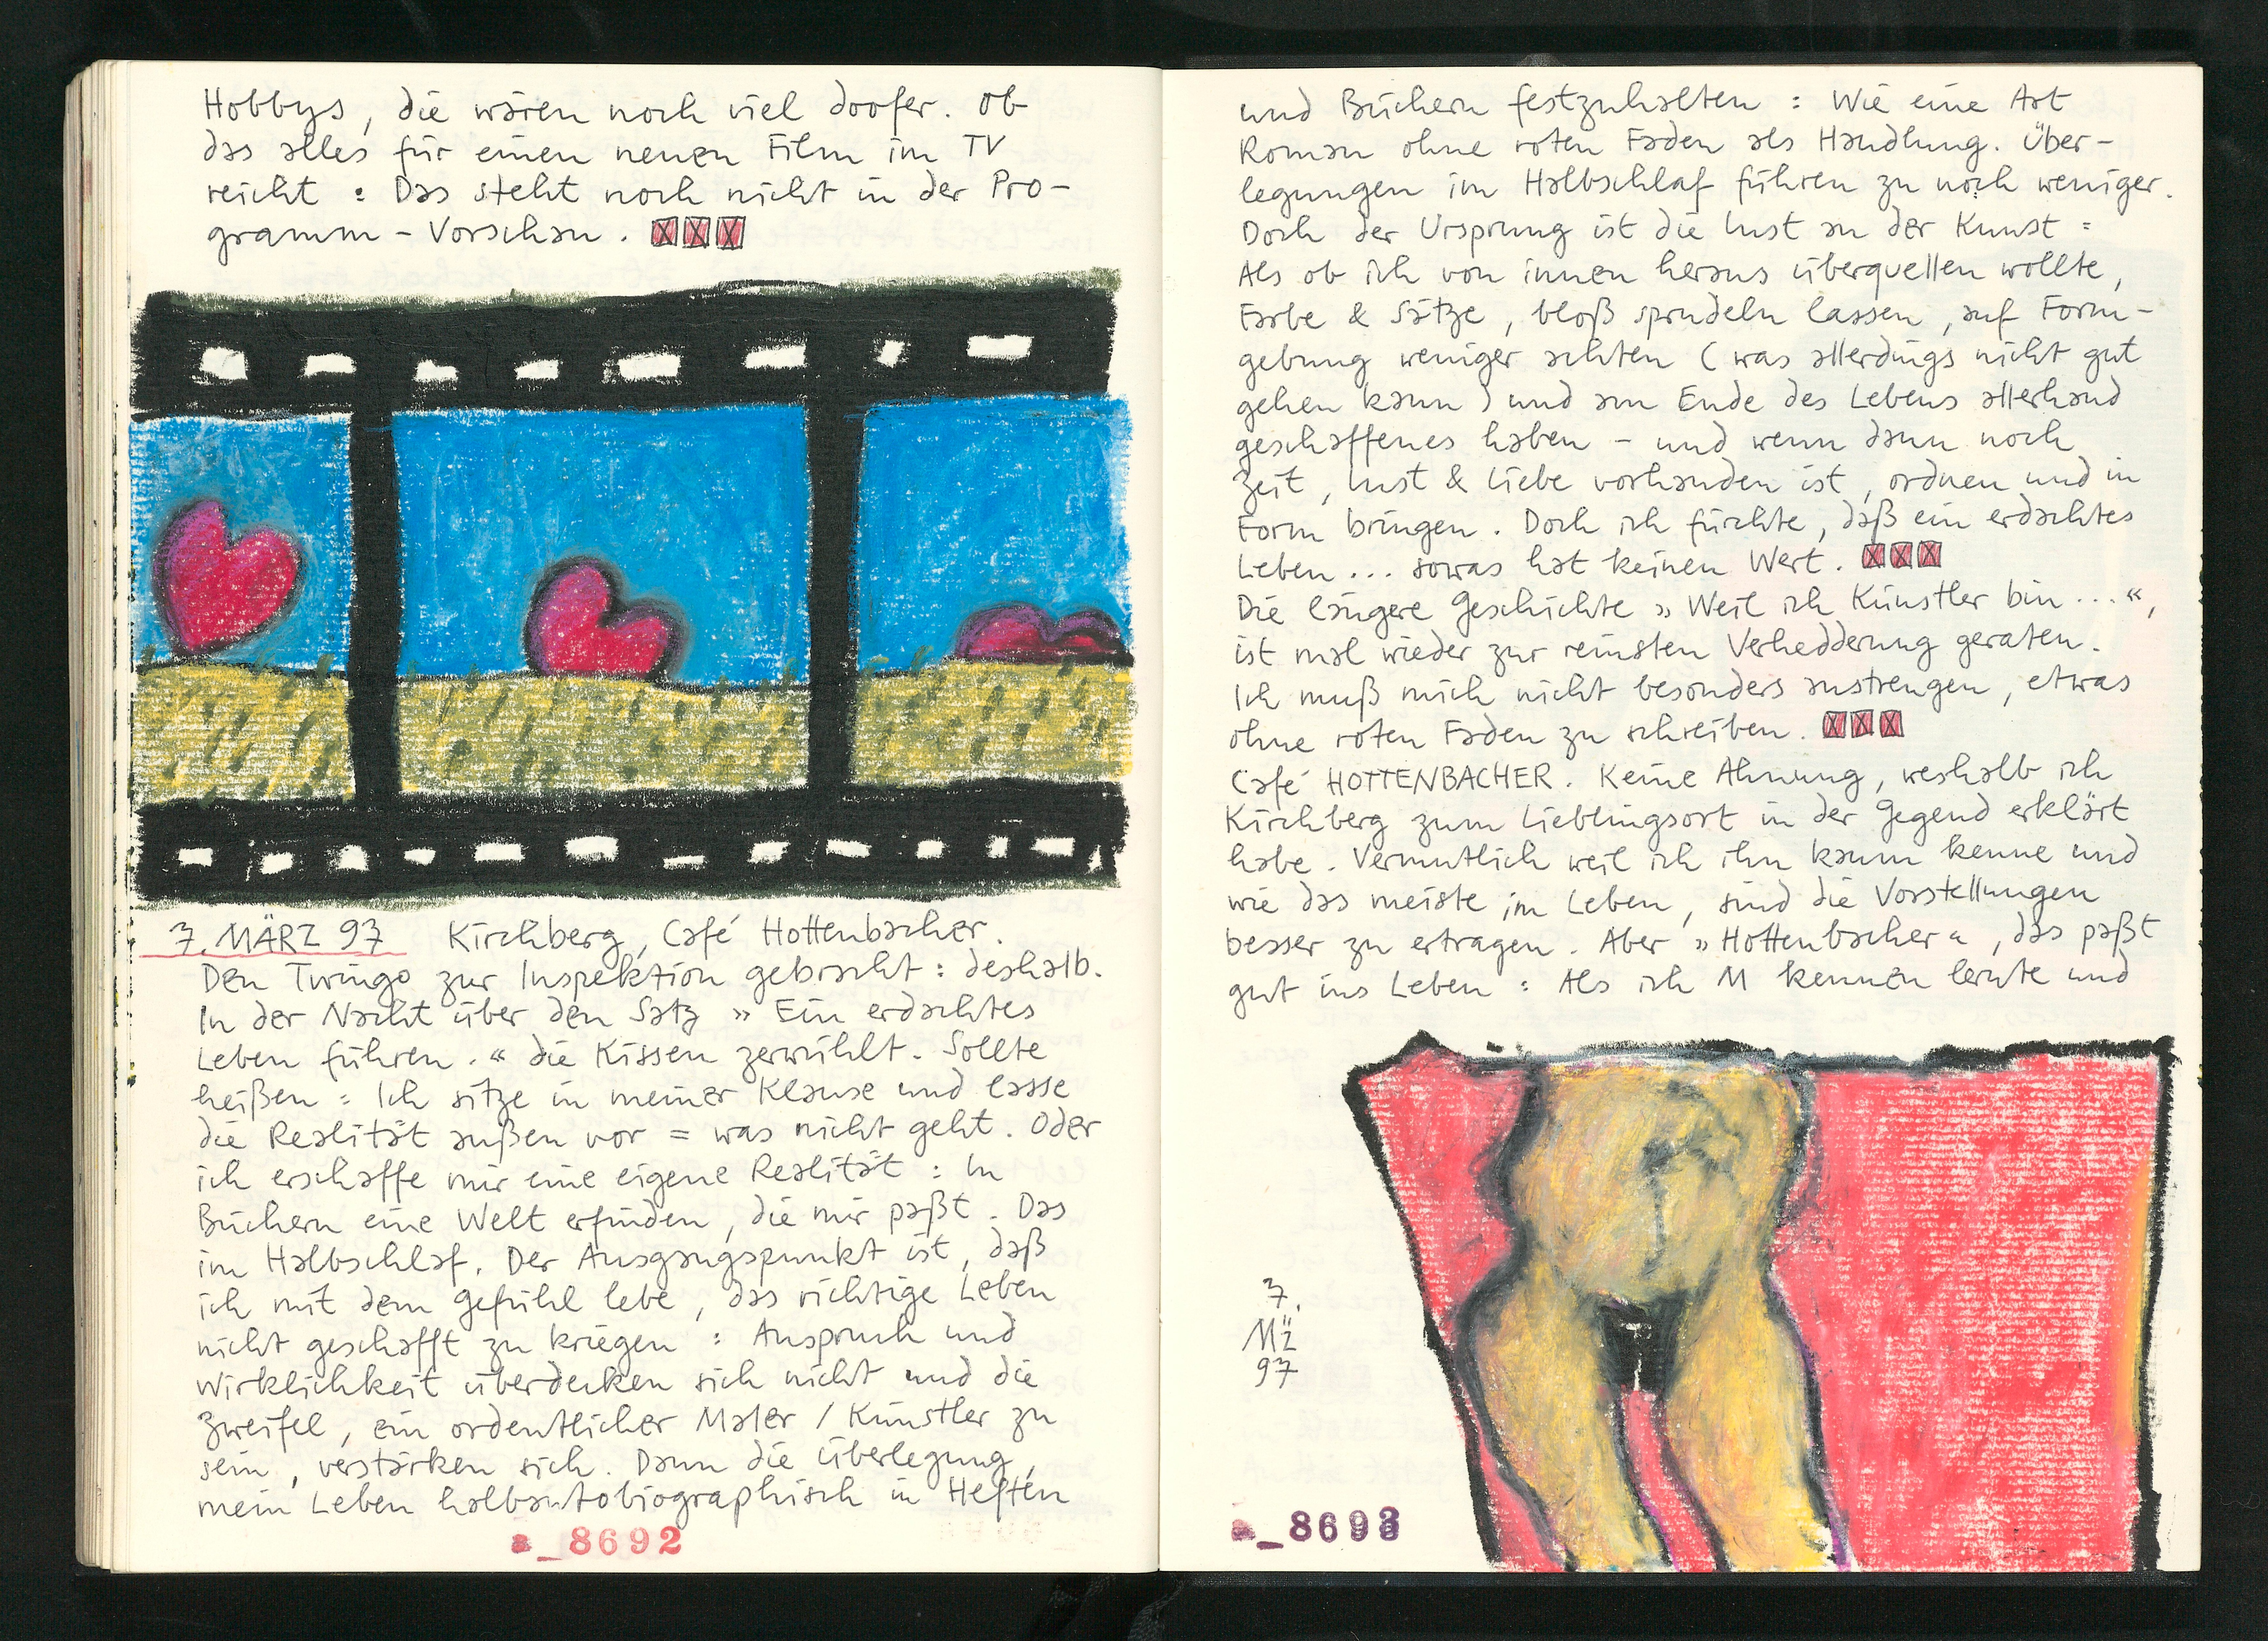 Hobbys, die wären noch viel doofer. Ob
das alles für einen neuen Film im TV
reicht : Das steht noch nicht in der Pro-
gramm - Vorschau. XXX
7. MÄRZ 97 Kirchberg, Café Hottenbacher.
Den Twingo zur Inspektion gebracht : deshalb.
In der Nacht über den Satz » Ein erdachtes
Leben führen. « die Kissen zerwühlt. Sollte
heißen : Ich sitze in meiner Klause und lasse
die Realität außen vor = was nicht geht. Oder
ich erschaffe mir eine eigene Realität : In
Büchern eine Welt erfinden, die mir paßt. Das
im Halbschlaf. Der Ausgangspunkt ist, daß
ich mit dem Gefühl lebe, das richtige Leben
nicht geschafft zu kriegen : Anspruch und
Wirklichkeit überdecken sich nicht und die
Zweifel, ein ordentlicher Maler / Künstler zu
sein, verstärken sich. Dann die Überlegung,
mein Leben halbautobiographisch in Heften
a_8692
und Büchern festzuhalten : Wie eine Art
Roman ohne roten Faden als Handlung. Über-
legungen im Halbschlaf führen zu noch weniger.
Doch der Ursprung ist die Lust an der Kunst :
Als ob ich von innen heraus überquellen wollte,
Farbe & Sätze, bloß sprudeln lassen, auf Form-
gebung weniger achten ( was allerdings nicht gut
gehen kann ) und am Ende des Lebens allerhand
geschaffenes haben - und wenn dann noch
Zeit, Lust & Liebe vorhanden ist, ordnen und in
Form bringen. Doch ich fürchte, daß ein erdachtes
Leben ... sowas hat keinen Wert. XXX
Die längere Geschichte » Weil ich Künstler bin ... «,
ist mal wieder zur reinsten Verhedderung geraten.
Ich muß mich nicht besonders anstrengen, etwas
ohne roten Faden zu schreiben. XXX
Café HOTTENBACHER. Keine Ahnung, weshalb ich
Kirchberg zum Lieblingsort in der Gegend erklärt
habe. Vermutlich weil ich ihn kaum kenne und
wie das meiste im Leben, sind die Vorstellungen
besser zu ertragen. Aber » Hottenbacher «, das paßt
gut ins Leben : Als ich M kennen lernte und
7.
MÄ
97
a_8693